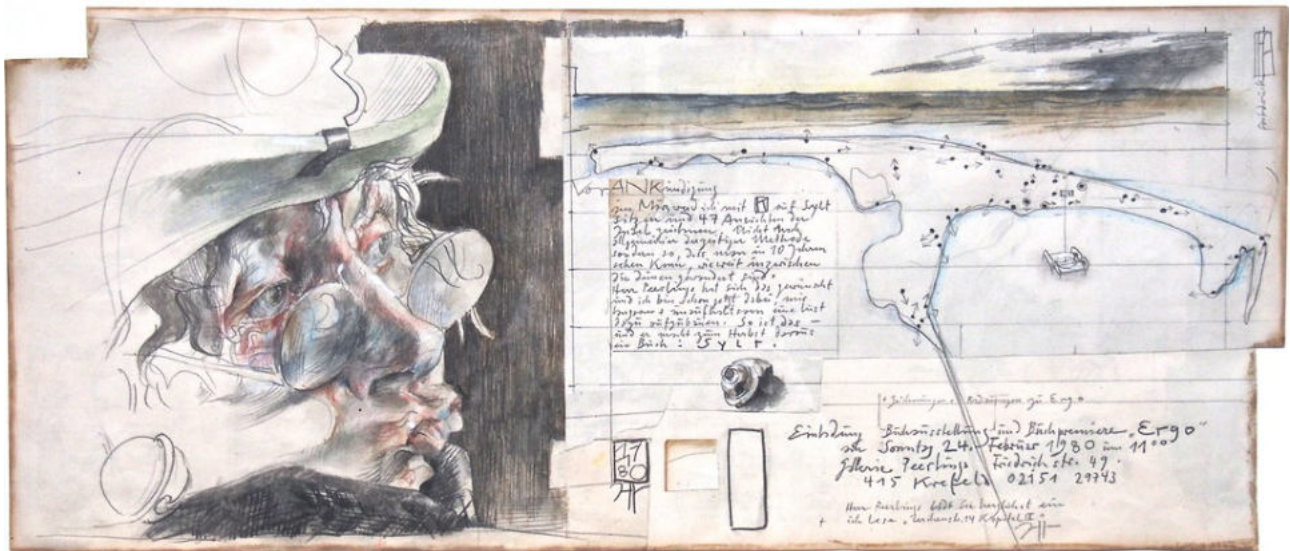 VorANKündigung
im März werd ich mit auf Sylt
sitzen und 47 Ansichten der
Insel zeichnen. Nicht nach
allgemeiner derzeitiger Methode
sondern so, dass man in 10 Jahren
sehen kann, wieweit inzwischen
die Dünen gewandert sind.
Herr Peerlings hat sich das gewünscht
und ich bin schon jetzt dabei, mir
langsam + unaufhaltsam eine Lust
dazu aufzubauen. So ist das –
und er macht zum Herbst daraus
ein Buch: Sylt.
Zeichnungen zu Ergo
Einladung Buchausstellung und Buchpremiere „Ergo“
am Sonntag 24. Februar 1980 um 11°°
Galerie Peerlings Friedrichstr. 49.
415 Krefeld 02151 29743
Herr Peerlings lädt Sie herzlichst ein
+ ich lese
17
80